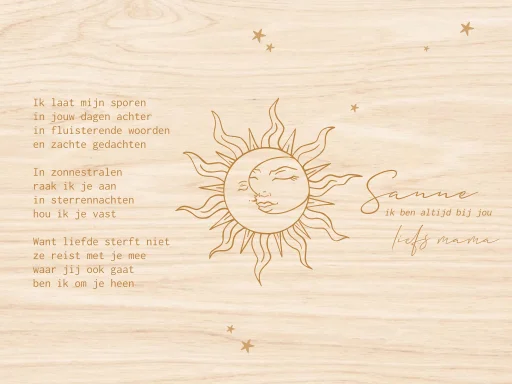 Ik laat mijn sporen
in jouw dagen achter
in fluisterende woorden
en zachte gedachten

In zonnestralen
raak ik je aan
in sterrennachten
hou ik je vast

Want liefde sterft niet
ze reist met je mee
waar jij ook gaat
ben ik om je heen

Sanne
ik ben altijd bij jou
liefs mama